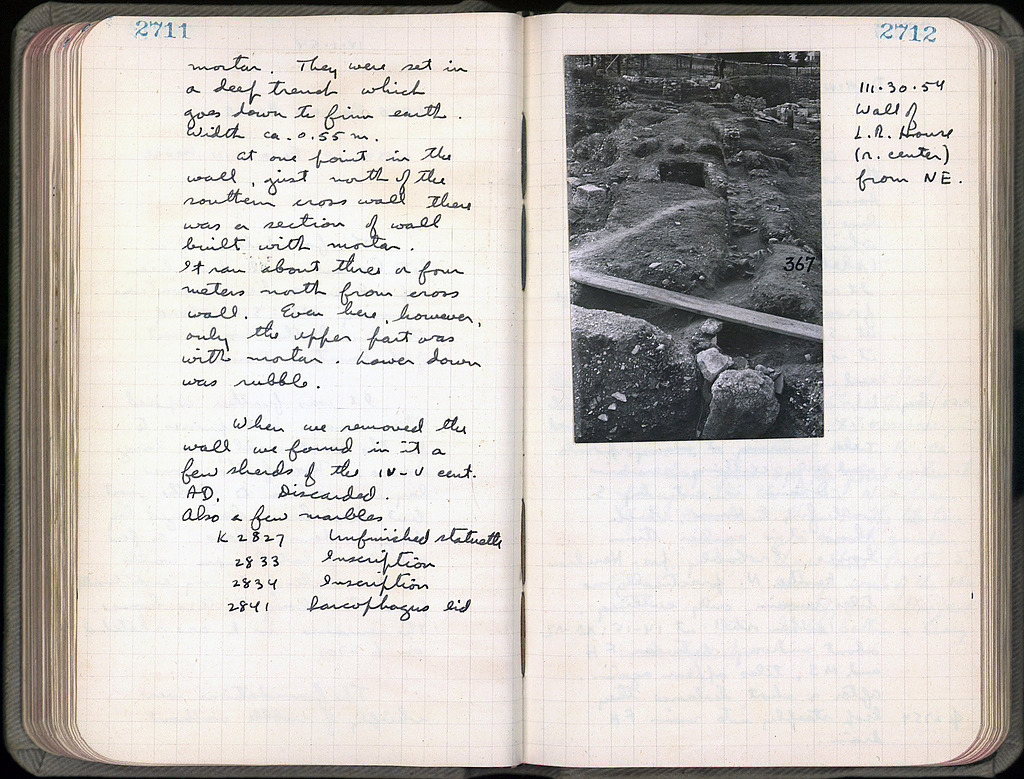 2711
mortar. They were set in
a deep trench which
goes down to firm earth.
Width ca. 0.55 m.
At one point in the
wall, just north of the
southern cross wall there
was a section of wall
built with mortar.
It ran about three or four
meters north from cross
wall. Even here, however,
only the upper part was
with mortar. Lower down
was rubble.
When we removed the
wall we found in it a
few sherds of the IV-V cent.
AD. Discarded.
Also a few marbles
K 2827 Unfinished statuette
2833 Inscription
2834 Inscription
2841 Sarcophagus lid
2712
III.30.54
Wall of
L.R. House
(r. center)
from NE.
367